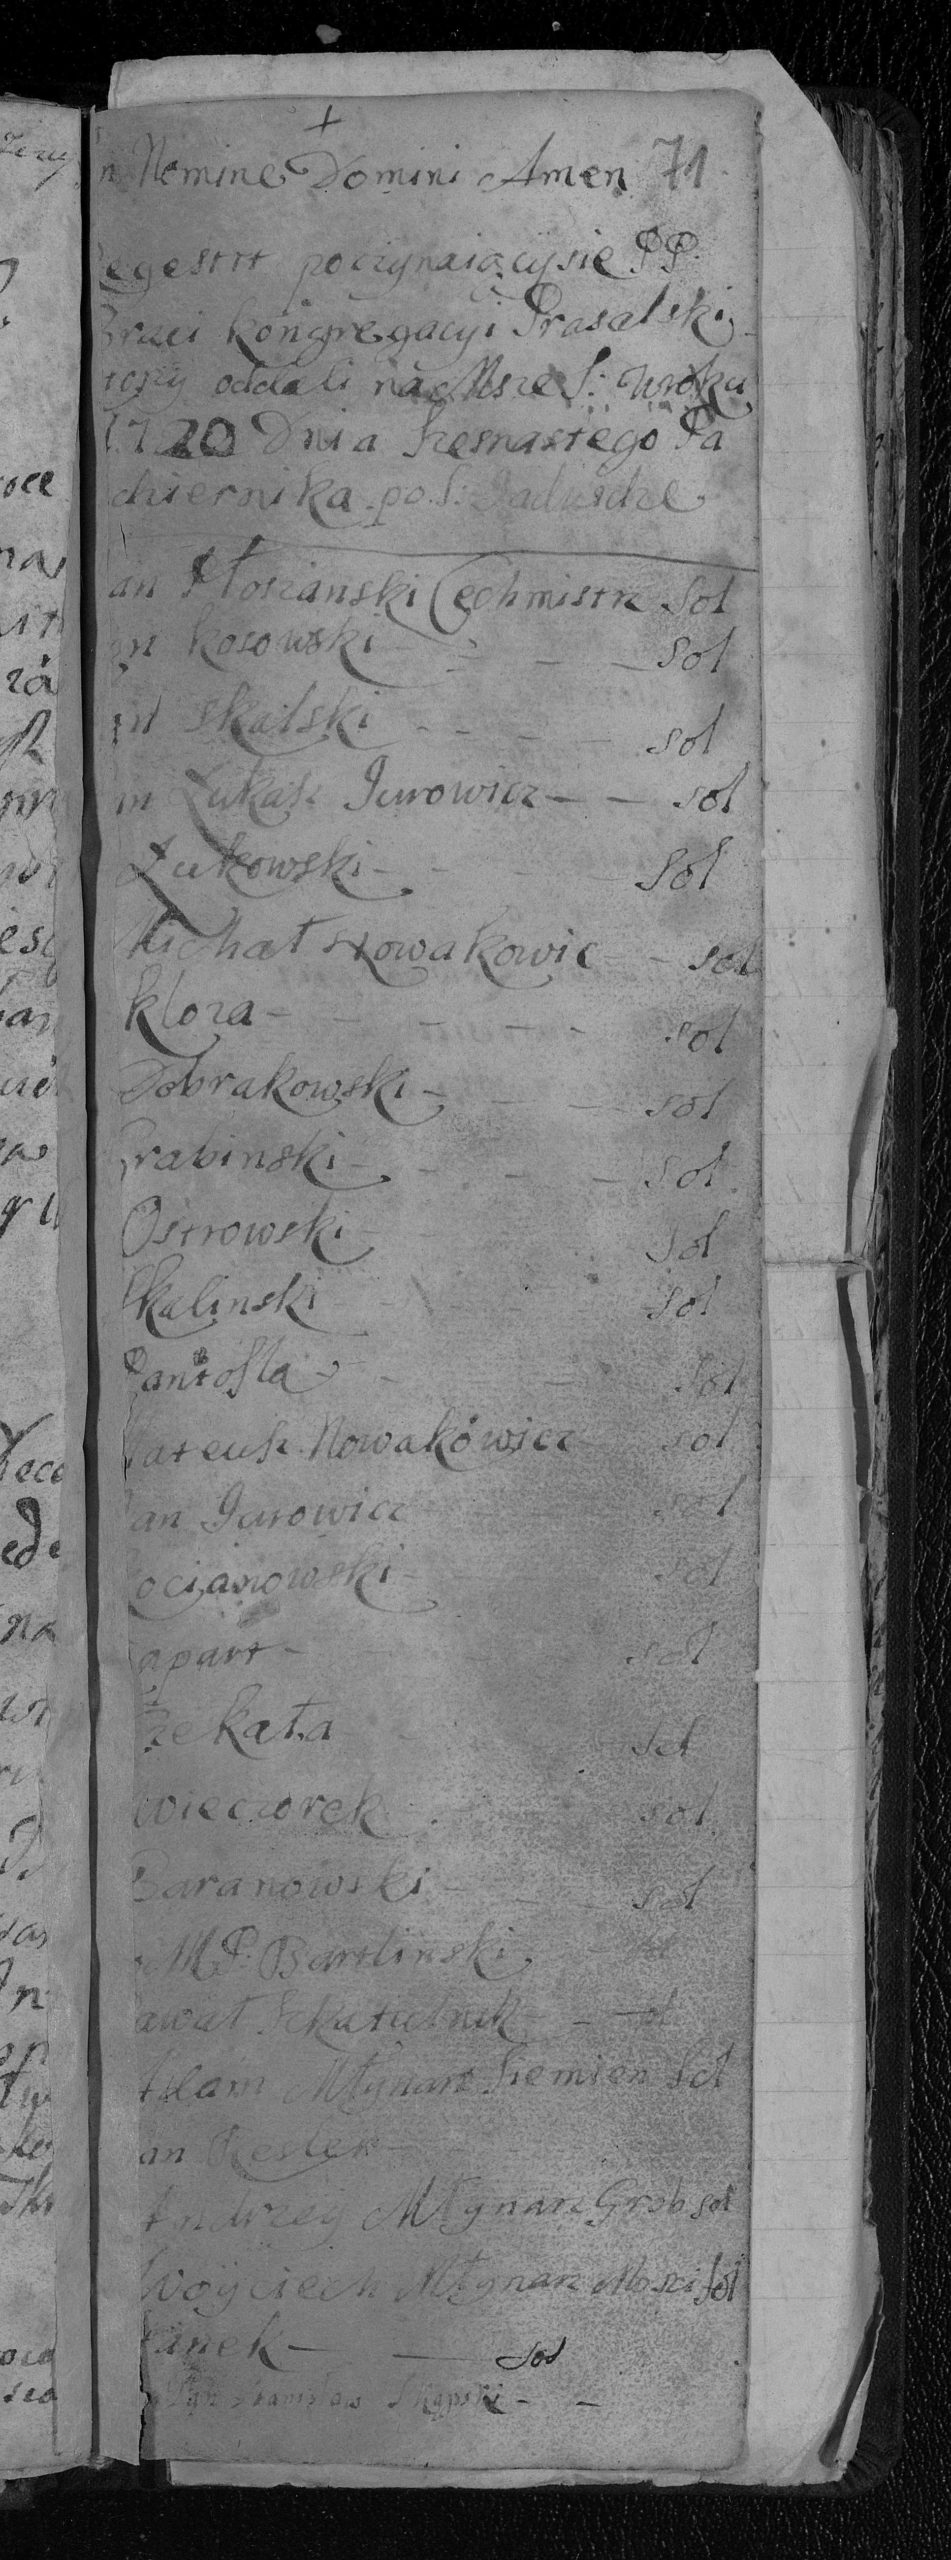 †
n Nomine Domini Amen 71
egestrt poczynaiącÿsie PP.
Braci kongregacyi Prasalski
tory oddali na Msze S: wroku
1720 Dnia szesnastego Pa
dziernika po S: Jadwidze
an Płoszanski Cechmistrz Sol
an kosowski sol
an Skalski sol
an Lukasz Jurowicz sol
Zukowski sol
Michał Nowakowic sol
kloza sol
Dobrakowski sol
Grabinski sol
Ostrowski sol
Skalinski sol
Pantofla sol
Mateusz Nowakowicz sol
Jan Jurowicz sol
ocianowski sol
apart sol
ekata sol
wieczorek sol
Baranowski sol
MP. Bartlinski
awał
Adam Młynarz Siemien Sol
an
Andrzeÿ Młynarz Grob sol
Woÿciech Młynarz sol
anek sol
Pan Stanisław